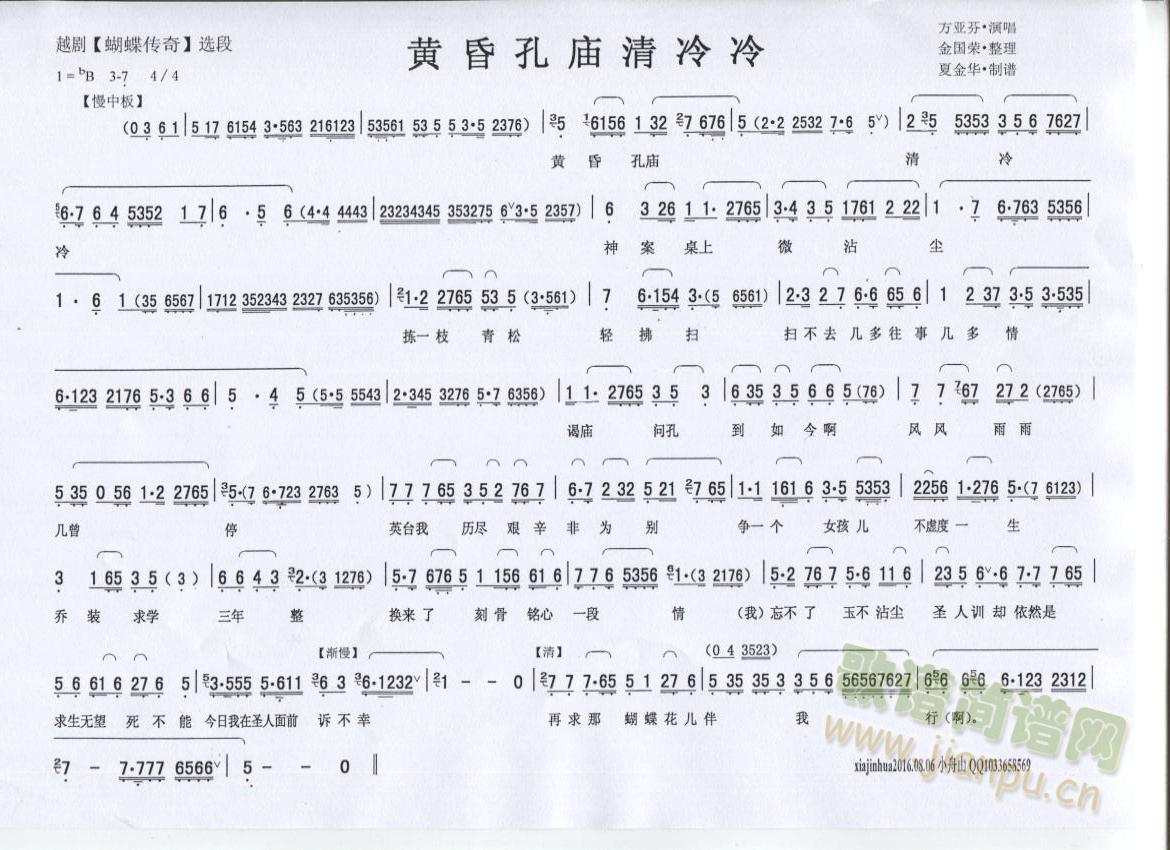 越剧【蝴蝶传奇】选段
黄昏孔庙清冷冷
方亚芬·演唱
金国荣·整理
夏金华·制谱
1=ᵇB 3-7 4/4
【慢中板】
(0 3 6 1) | 5 17 6154 3·563 216123 | 53561 53 5 5 3·5 2376) | 3/5 1/6156 1 32 2/7 676 | 5 (2·2 2532 7·6 5ⱽ) | 2 3/5 5353 3 5 6 7627 |
黄 昏 孔庙 清 冷
5/6·7 6 4 5352 1 7 | 6 · 5 6 (4·4 4443 | 23234345 353275 6ⱽ3·5 2357) | 6 3 26 1 1· 2765 | 3·4 3 5 1761 2 22 | 1 · 7 6·763 5356 |
冷 神 案 桌上 微 沾 尘
1 · 6 1 (35 6567 | 1712 352343 2327 635356) | 2/1·2 2765 53 5 (3·561) | 7 6·154 3·(5 6561) | 2·3 2 7 6·6 65 6 | 1 2 37 3·5 3·535 |
拣一枝 青松 轻 拂 扫 扫不去 几多往 事 几 多 情
6·123 2176 5·3 6 6 | 5 · 4 5 (5·5 5543 | 2·345 3276 5·7 6356) | 1 1· 2765 3 5 3 | 6 35 3 5 6 6 5 (76) | 7 7 7/67 27 2 (2765) |
谒庙 问孔 到 如 今啊 风 风 雨雨
5 35 0 56 1·2 2765 | 3/5·(7 6·723 2763 5) | 7 7 7 65 3 5 2 76 7 | 6·7 2 32 5 21 2/7 65 | 1·1 161 6 3·5 5353 | 2256 1·276 5·(7 6123) |
几曾 停 英台我 历尽 艰 辛 非 为 别 争一个 女孩儿 不虚度一 生
3 1 65 3 5 (3) | 6 6 4 3 3/2·(3 1276) | 5·7 676 5 1 156 61 6 | 7 7 6 5356 6/1·(3 2176) | 5·2 76 7 5·6 11 6 | 23 5 6ⱽ·6 7·7 7 65 |
乔 装 求学 三年 整 换来了 刻骨 铭心 一段 情 (我)忘不了 玉不沾尘 圣 人训 却依然是
【渐慢】 【清】 (0 4 3523)
5 6 61 6 27 6 5 | 5/3·555 5·611 3/6 3 3/6·1232ⱽ | 2/1 – – 0 | 2/7 7 7·65 5 1 27 6 | 5 35 35 3 3 5 6 56567627 | 6/6 5/6 6·123 2312 |
求生无望 死 不 能 今日我在圣人面前 诉 不 幸 再求那 蝴蝶花儿伴 我 行(啊)。
2/7 – 7·777 6566ⱽ | 5 – – 0 ‖
歌谱简谱网
www.jianpu.cn
xiajinhua2016.08.06 小舟山 QQ1033658569